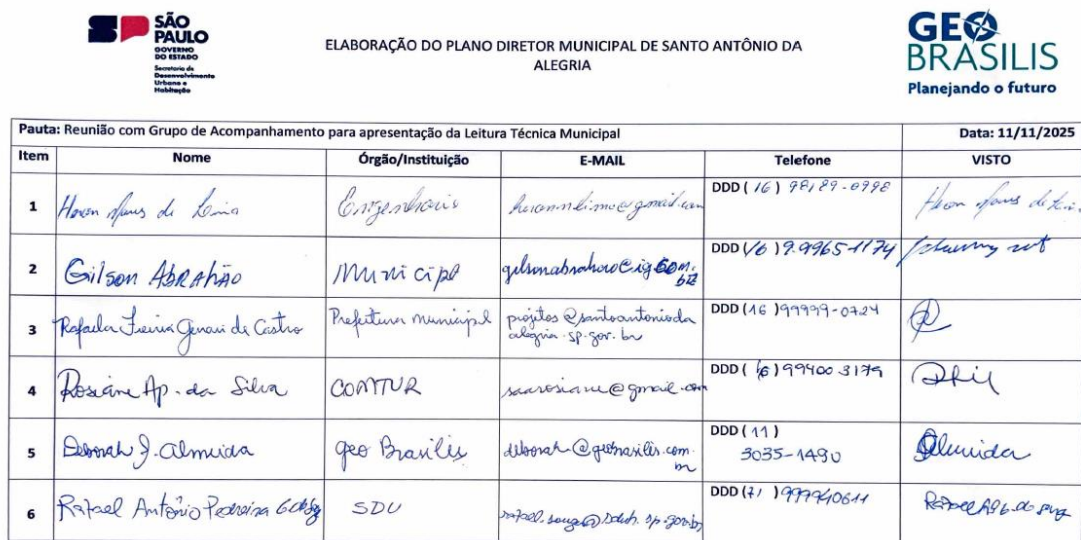 SÃO PAULO
GOVERNO DO ESTADO
Secretaria de Desenvolvimento Urbano e Habitação
ELABORAÇÃO DO PLANO DIRETOR MUNICIPAL DE SANTO ANTÔNIO DA
ALEGRIA
GEO BRASILIS
Planejando o futuro
Pauta: Reunião com Grupo de Acompanhamento para apresentação da Leitura Técnica Municipal Data: 11/11/2025
Item Nome Órgão/Instituição E-MAIL Telefone VISTO
1 de Lima Engenharia DDD (16) 98189-0998
2 Gilson ABRAhão municipal gilsonabrahao@ig.com.br DDD (16) 9.9965-1174
3 Rafaela de Castro Prefeitura municipal projetos@santoantonioda
alegria.sp.gov.br DDD (16) 99999-0724
4 Rosiane Ap. da Silva COMTUR @gmail.com DDD (16) 99400 3179
5 Deborah J. Almeida geo Brasilis deborah@geobrasilis.com.br DDD (11)
3035-1490 Almeida
6 Rafael Antônio Pedreira SDU DDD (71) 999940611